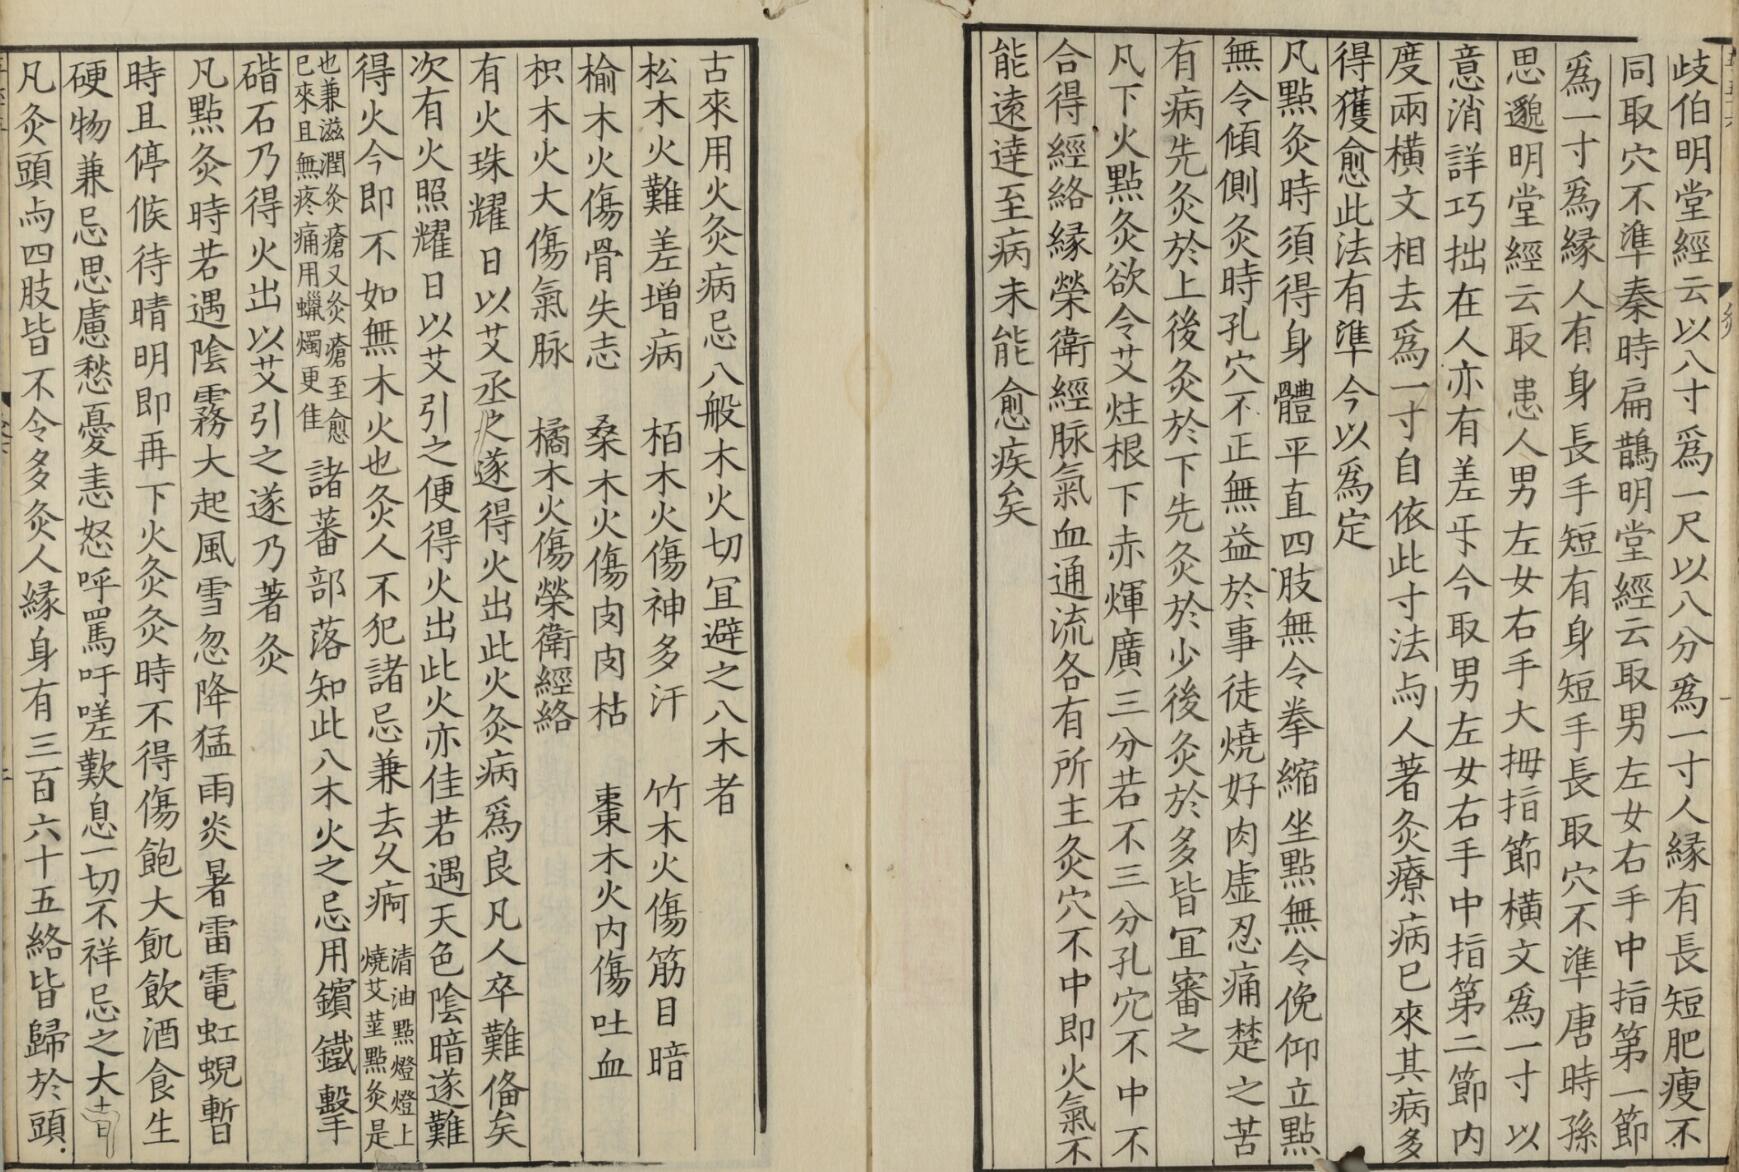 歧伯明堂經云以八寸爲一尺以八分爲一寸人縁有長短肥瘦不
同取穴不準秦時扁鵲明堂經云取男左女右手中指第一節
爲一寸爲縁人有身長手短有身短手長取穴不準唐時孫
思邈明堂經云取患人男左女右手大拇指節橫文爲一寸以
意消詳巧拙在人亦有差乎今取男左女右手中指第二節内
度兩橫文相去爲一寸自依此寸法与人著灸療病已來其病多
得獲愈此法有準今以爲定
凡點灸時須得身體平直四肢無令拳縮坐點無令俛仰立點
無令傾側灸時孔穴不正無益於事徒燒好肉虛忍痛楚之苦
有病先灸於上後灸於下先灸於少後灸於多皆宜審之
凡下火點灸欲令艾炷根下赤煇廣三分若不三分孔穴不中不
合得經絡縁榮衛經脉氣血通流各有所主灸穴不中即火氣不
能遠達至病未能愈疾矣
古來用火灸病忌八般木火切宜避之八木者
松木火難差增病　栢木火傷神多汗　竹木火傷筋目暗
榆木火傷骨失志　桑木火傷肉肉枯　棗木火内傷吐血
枳木火大傷氣脉　橘木火傷榮衛經絡
有火珠耀日以艾丞之遂得火出此火灸病爲良凡人卒難俻矣
次有火照耀日以艾引之便得火出此火亦佳若遇天色陰暗遂難
得火今即不如無木火也灸人不犯諸忌兼去久痾清油點燈燈上
燒艾莖點灸是
也兼滋潤灸瘡又灸瘡至愈
已來且無疼痛用蠟燭更佳諸蕃部落知此八木火之忌用鑌鐵擊
碏石乃得火出以艾引之遂乃著灸
凡點灸時若遇陰霧大起風雪忽降猛雨炎暑雷電虹蜺暫
時且停候待晴明即再下火灸灸時不得傷飽大飢飲酒食生
硬物兼忌思慮愁憂恚怒呼罵吁嗟歎息一切不祥忌之大吉
凡灸頭与四肢皆不令多灸人縁身有三百六十五絡皆歸於頭